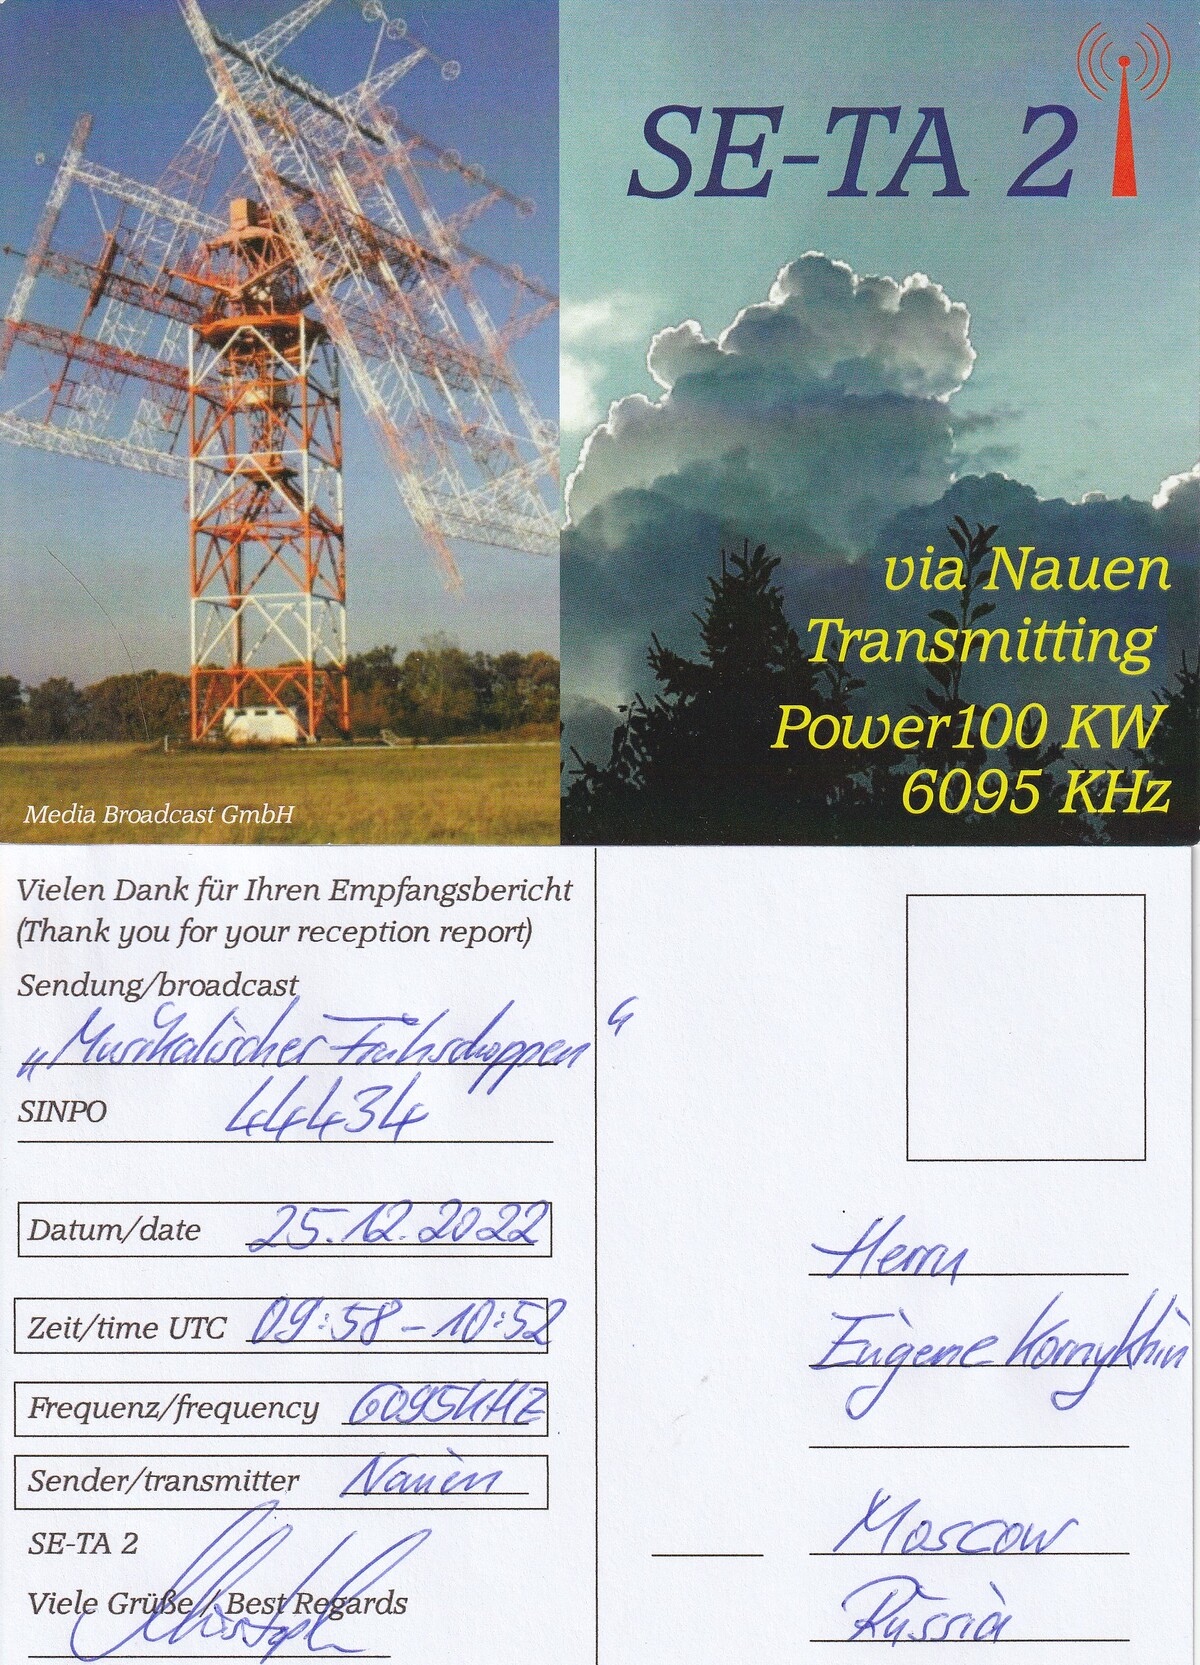 SE-TA 2
via Nauen
Transmitting
Power100 KW
6095 KHz
Media Broadcast GmbH
Vielen Dank für Ihren Empfangsbericht
(Thank you for your reception report)
Sendung/broadcast
„Musikalischer Frühschoppen“
SINPO 44434
Datum/date 25.12.2022
Zeit/time UTC 09:58 – 10:52
Frequenz/frequency 6095 kHz
Sender/transmitter Nauen
SE-TA 2
Viele Grüße / Best Regards
Christoph
Herrn
Eugene Kornykhin
Moscow
Russia